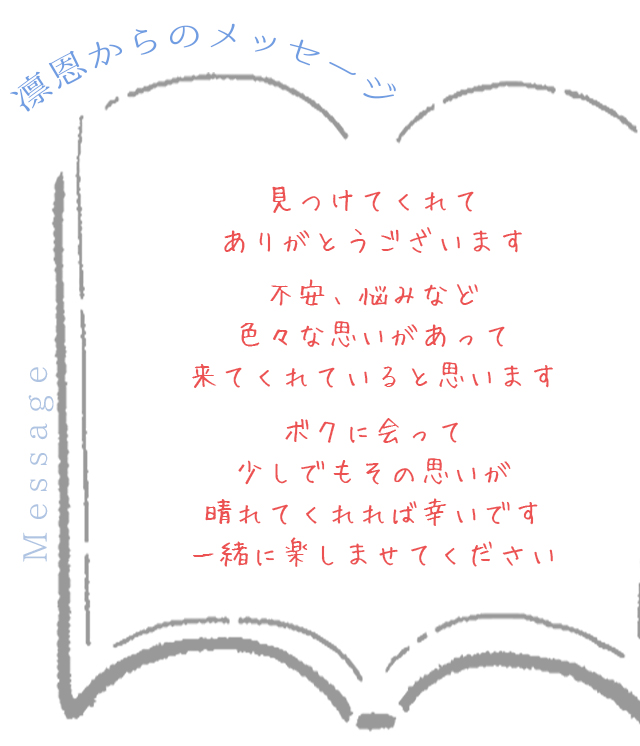 凛恩からのメッセージ
見つけてくれて
ありがとうございます
不安、悩みなど
色々な思いがあって
来てくれていると思います
ボクに会って
少しでもその思いが
晴れてくれれば幸いです
一緒に楽しませてください
Message